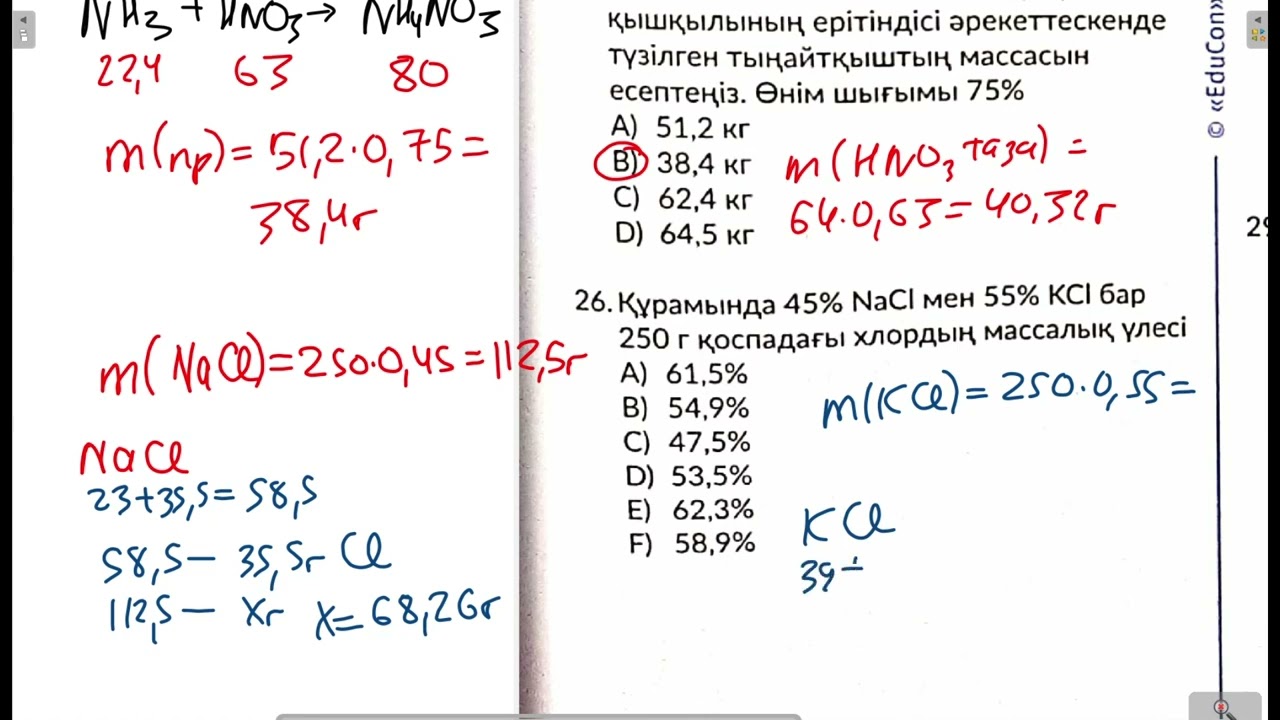 NH3 + HNO3 → NH4NO3
22,4 63 80
m(пр) = 51,2·0,75 =
38,4г
m(NaCl)=250·0,45=112,5г
NaCl
23+35,5=58,5
58,5 — 35,5г Cl
112,5 — Xг X=68,26г
қышқылының ерітіндісі әрекеттескенде
түзілген тыңайтқыштың массасын
есептеңіз. Өнім шығымы 75%
A) 51,2 кг
B) 38,4 кг
C) 62,4 кг
D) 64,5 кг
m(HNO3 таза) =
64·0,63=40,32г
26. Құрамында 45% NaCl мен 55% KCl бар
250 г қоспадағы хлордың массалық үлесі
A) 61,5%
B) 54,9%
C) 47,5%
D) 53,5%
E) 62,3%
F) 58,9%
m(KCl)=250·0,55=
KCl
39+
© «EduCon»